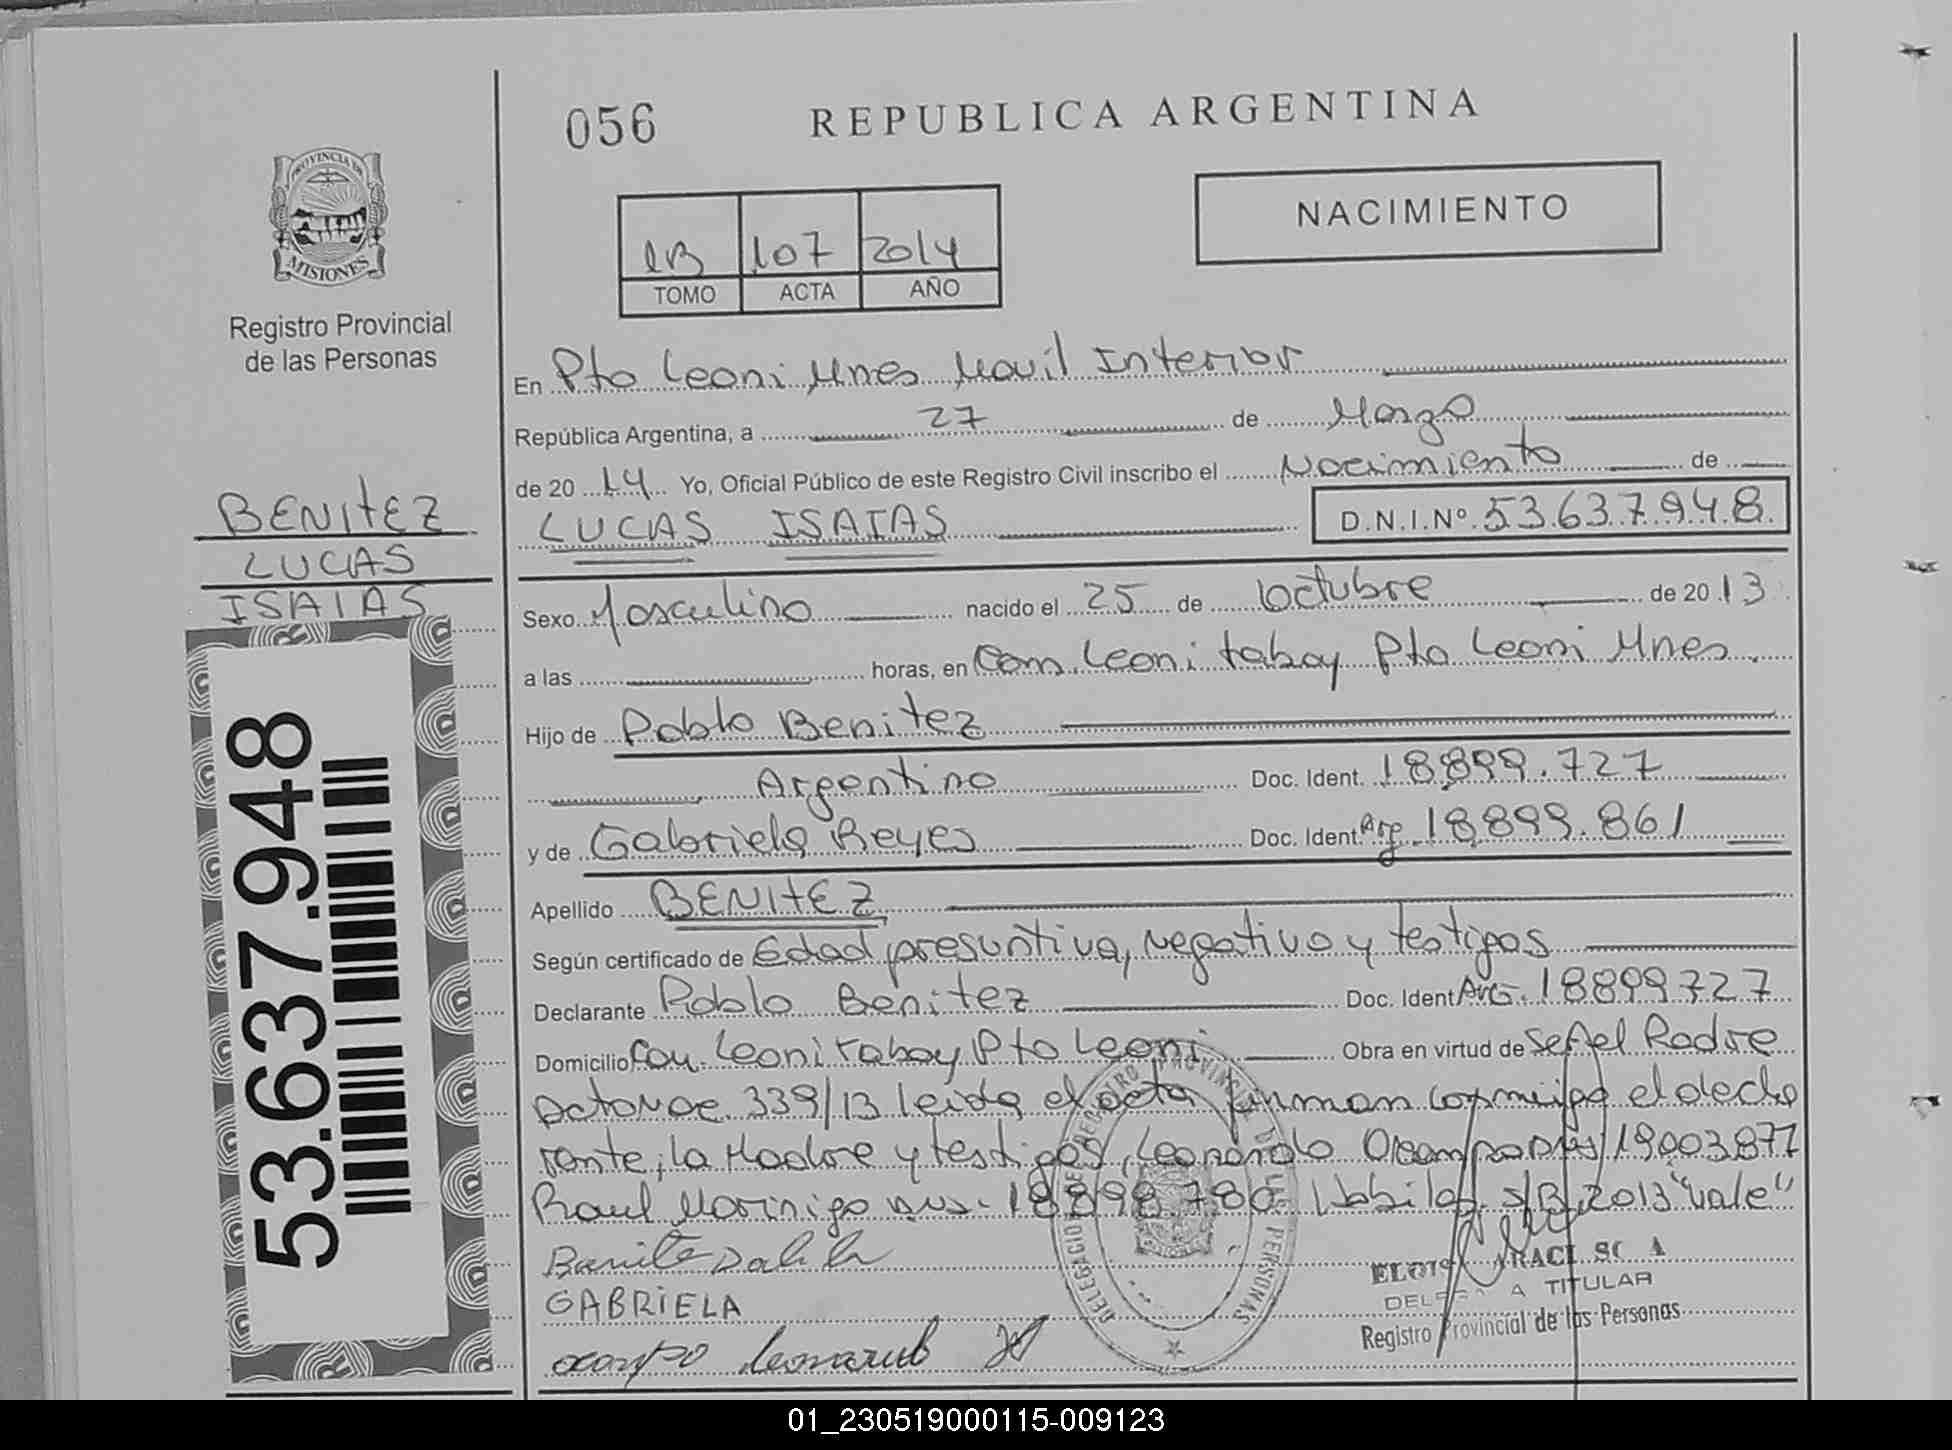 056
REPUBLICA ARGENTINA
NACIMIENTO
PROVINCIA DE
MISIONES
Registro Provincial
de las Personas
1B 107 2014
TOMO ACTA AÑO
BENITEZ
LUCAS
ISAIAS
53.637.948
En Pto Leoni Mnes Movil Interior
República Argentina, a 27 de Marzo
de 2014 Yo, Oficial Público de este Registro Civil inscribo el Nacimiento de
LUCAS ISAIAS D.N.I.Nº 53.637.948
Sexo Masculino nacido el 25 de Octubre de 2013
a las horas, en Com. Leoni tabay Pto Leoni Mnes.
Hijo de Pablo Benitez
Argentino Doc. Ident. 18899.727
y de Gabriela Reyes Doc. Ident Arg 18899.861
Apellido BENITEZ
Según certificado de Edad presuntiva, negativo y testigos
Declarante Pablo Benitez Doc. Ident Arg. 18899727
Domicilio Com. Leoni tabay Pto Leoni Obra en virtud de ser el Padre
339/13 leida el acta firman conmigo el decla
rante, la Madre y testigos, Leonardo Ocampo 19003877
Raul Morinigo 18898780 2013 "vale"
GABRIELA
ocampo
DELEGACION REGISTRO PROVINCIAL DE LAS PERSONAS
TITULAR
Registro Provincial de las Personas
01_230519000115-009123